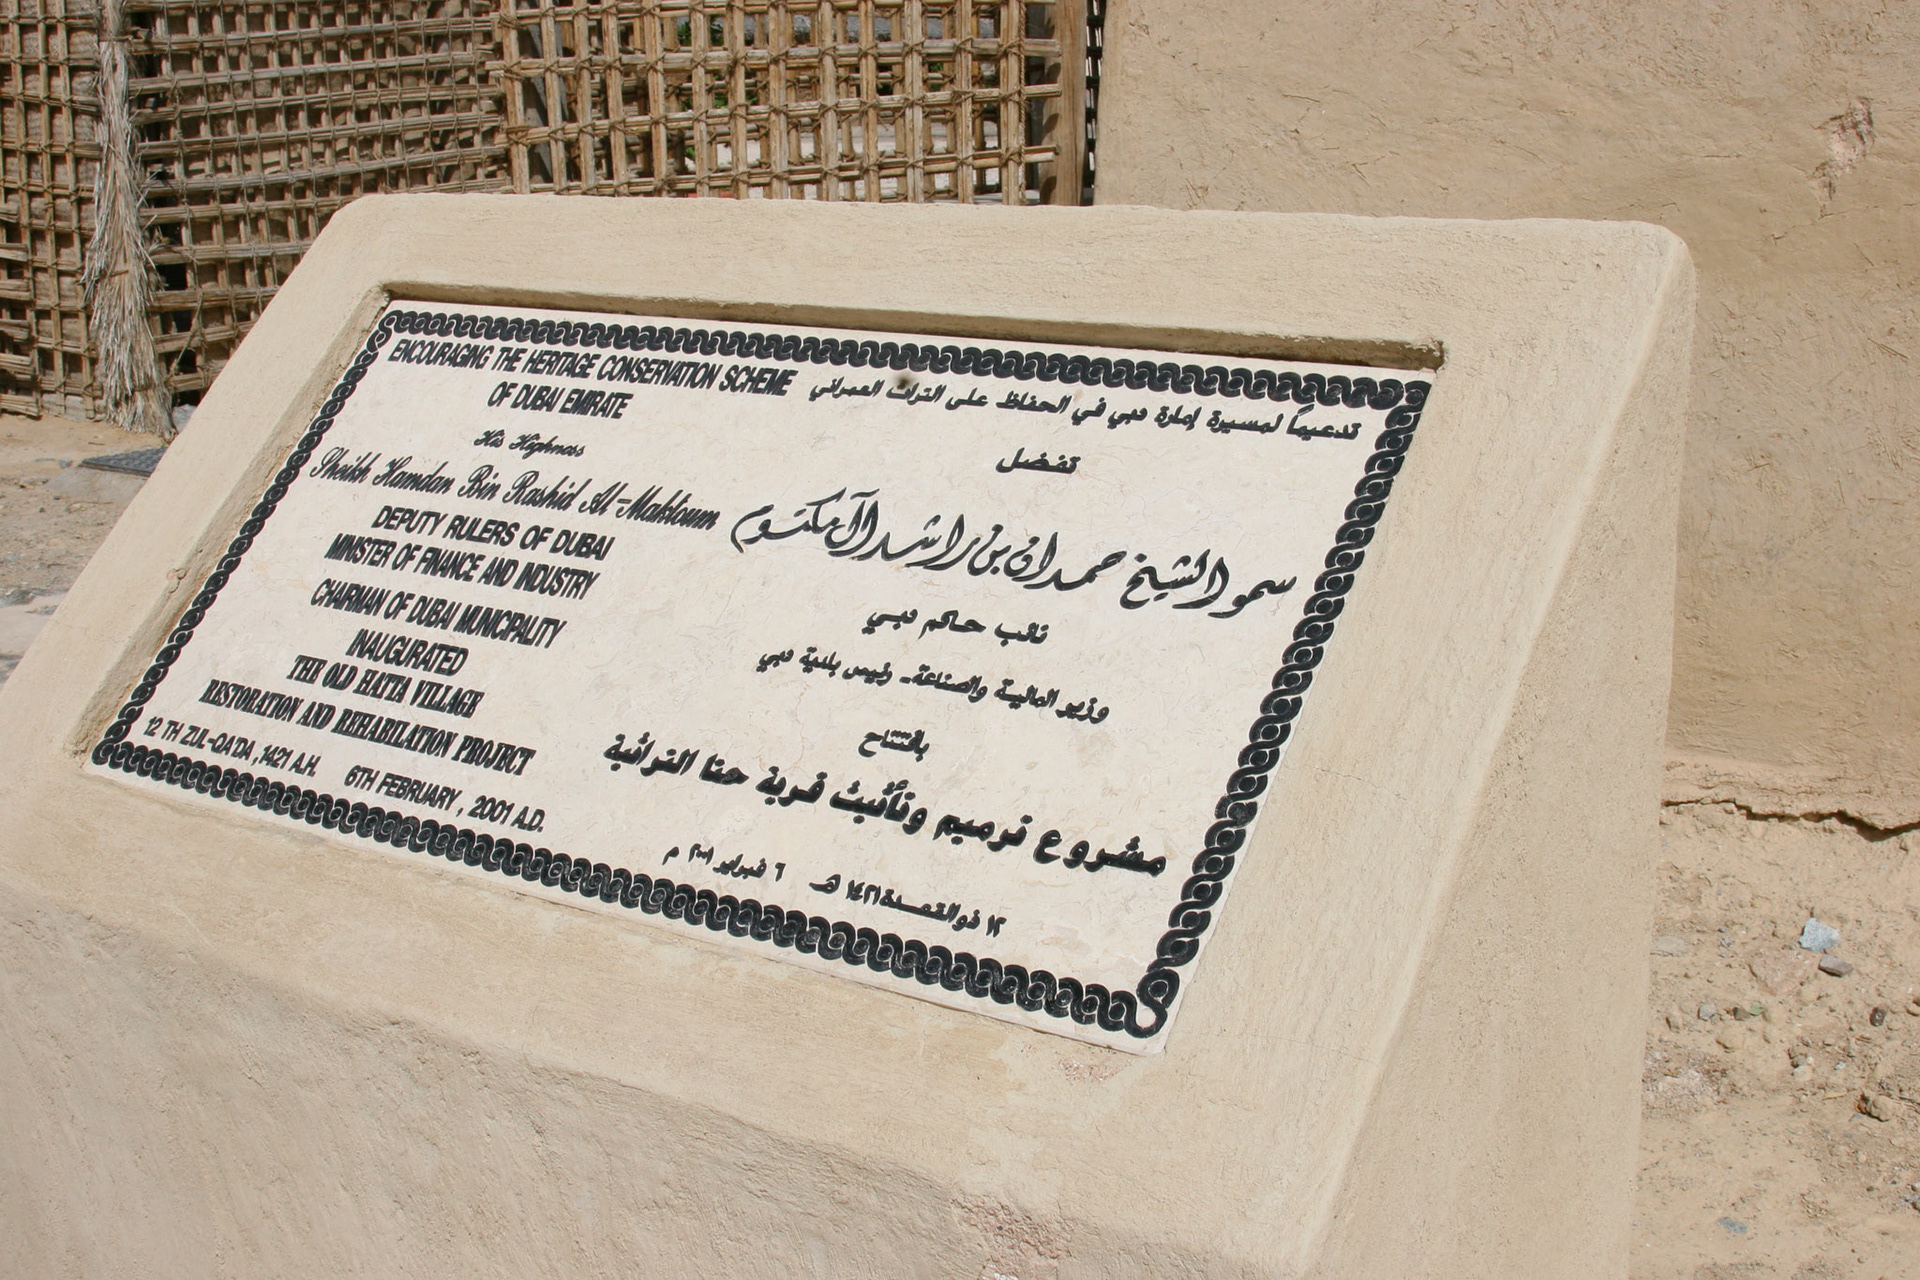 ENCOURAGING THE HERITAGE CONSERVATION SCHEME
OF DUBAI EMIRATE
His Highness
Sheikh Hamdan Bin Rashid Al-Maktoum
DEPUTY RULERS OF DUBAI
MINISTER OF FINANCE AND INDUSTRY
CHAIRMAN OF DUBAI MUNICIPALITY
INAUGURATED
THE OLD HATTA VILLAGE
RESTORATION AND REHABILATION PROJECT
12 TH ZUL-QA'DA ,1421 A.H. 6TH FEBRUARY , 2001 A.D.
تدعيماً لمسيرة إمارة دبي في الحفاظ على التراث العمراني
تفضل
سمو الشيخ حمدان بن راشد آل مكتوم
نائب حاكم دبي
وزير المالية والصناعة - رئيس بلدية دبي
بافتتاح
مشروع ترميم وتأثيث قرية حتا التراثية
١٢ ذوالقعدة ١٤٢١ هـ ٦ فبراير ٢٠٠١ م